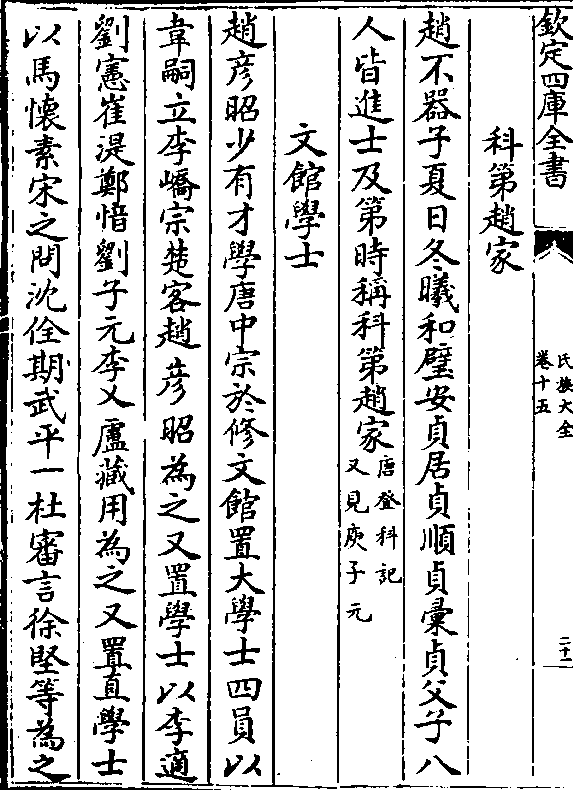 欽定四庫全書
氏族大全
卷十五
二十一
科第趙家
趙不器子夏日冬曦和璧安貞居貞順貞彚貞父子八
人皆進士及第時稱科第趙家
唐登科記
又見庾子元
文館學士
趙彦昭少有才學唐中宗於修文館置大學士四員以
韋嗣立李嶠宗楚客趙彦昭為之又置學士以李適
劉憲崔湜鄭愔劉子元李乂盧藏用為之又置直學士
以馬懷素宋之問沈佺期武平一杜審言徐堅等為之